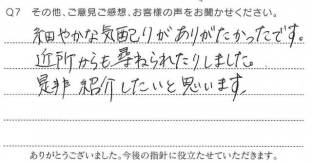 Q7 その他、ご意見ご感想、お客様の声をお聞かせください。
細やかな気配りがありがたかったです。
近所からも尋ねられたりしました。
是非紹介したいと思います。
ありがとうございました。今後の指針に役立たせていただきます。